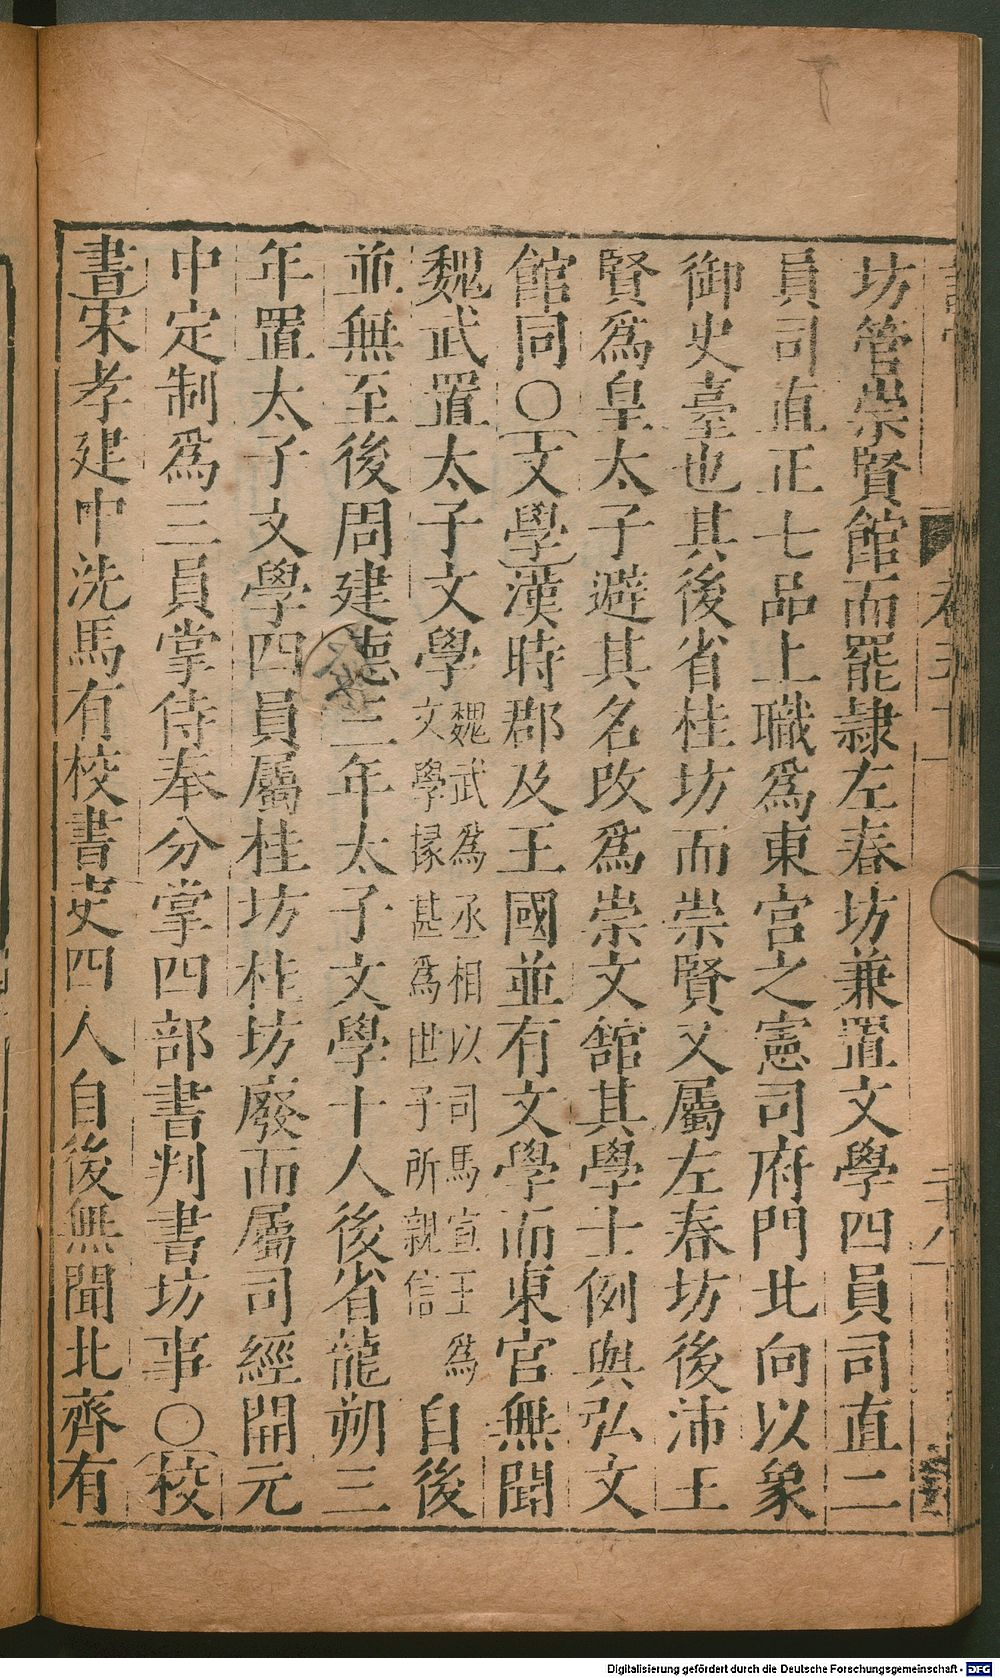 坊管崇賢館而罷隷左春坊兼置文學四員司直二
員司直正七品上職爲東宮之憲司府門北向以象
御史臺也其後省桂坊而崇賢又屬左春坊後沛王
賢爲皇太子避其名改爲崇文館其學士例與弘文
館同○文學漢時郡及王國並有文學而東官無聞
魏武置太子文學魏武爲丞相以司馬宣王爲文學掾甚爲世子所親信自後
並無至後周建德三年太子文學十人後省龍朔三
年置太子文學四員屬桂坊桂坊廢而屬司經開元
中定制爲三員掌侍奉分掌四部書判書坊事○校
書宋孝建中洗馬有校書吏四人自後無聞北齊有
Digitalisierung gefördert durch die Deutsche Forschungsgemeinschaft - DFG